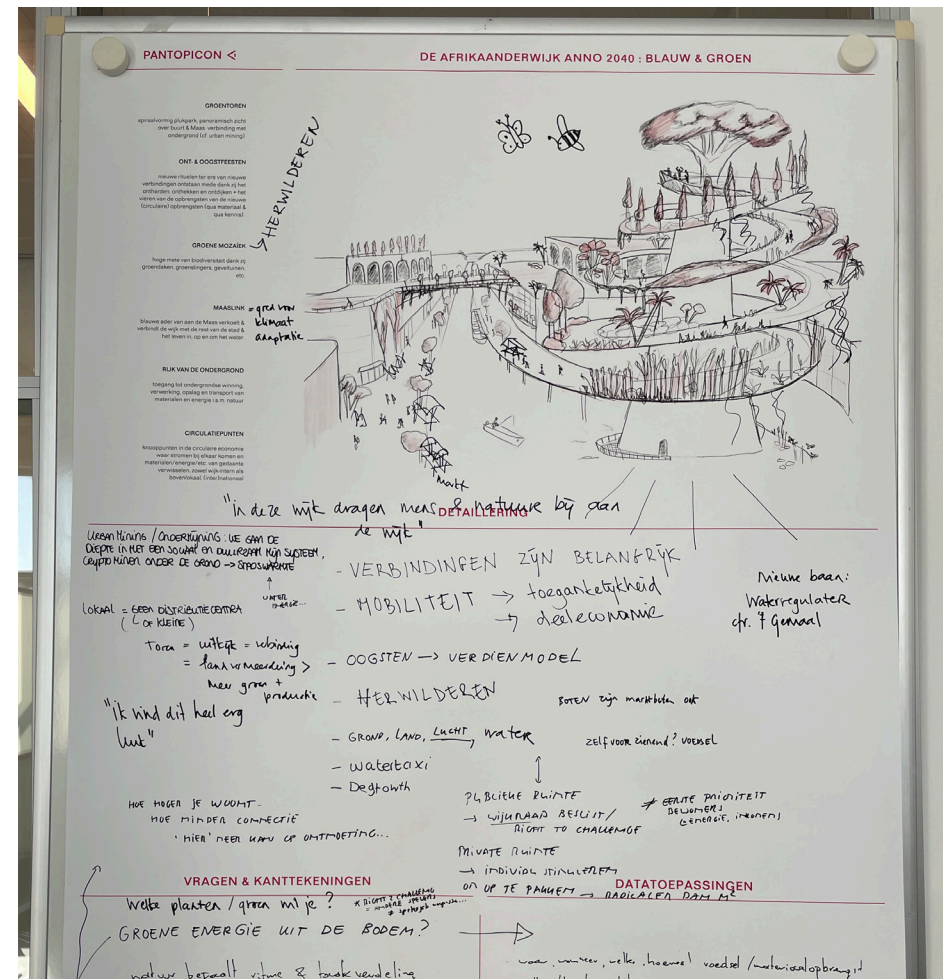 PANTOPICON
DE AFRIKAANDERWIJK ANNO 2040 : BLAUW & GROEN
GROENTOREN
spiraalvormig plukpark, panoramisch zicht
over buurt & Maas verbinding met
ondergrond (cf. urban mining)
ONT- & OOGSTFEESTEN
nieuwe rituelen ter ere van nieuwe
verbindingen ontstaan mede dankzij het
ontharden, onthekken en ontdijken + het
vieren van de opbrengsten van de nieuwe
(circulaire) opbrengsten (qua materiaal &
qua kennis)
HERWILDEREN
GROENE MOZAÏEK
hoge mate van biodiversiteit dank zij
groendaken, groenslingers, geveltuinen,
etc.
MAASLINK = graad van
klimaat
adaptatie
blauwe ader van aan de Maas verkoelt &
verbindt de wijk met de rest van de stad &
het leven in, op en om het water
RIJK VAN DE ONDERGROND
toegang tot ondergrondse winning,
verwerking, opslag en transport van
materialen en energie i.s.m. natuur
CIRCULATIEPUNTEN
knooppunten in de circulaire economie
waar stromen bij elkaar komen en
materialen/energie/etc. van gedaante
verwisselen, zowel wijk-intern als
bovenlokaal, (inter)nationaal
Markt
"in deze wijk dragen mens & natuur bij aan
de wijk"
DETAILLERING
URBAN MINING / ONDERMIJNING : WE GAAN DE
DIEPTE IN MET EEN SOCIAAL EN DUURZAAM MIJN SYSTEEM,
CRYPTO MINEN ONDER DE GROND → STADSWARMTE
WATER
ENERGIE...
LOKAAL = GEEN DISTRIBUTIECENTRA
( OF KLEINE )
Toren = uitkijk = verbinding
= landvermeerdering >
meer groen +
productie
"ik vind dit heel erg
leuk"
- VERBINDINGEN ZIJN BELANGRIJK
- MOBILITEIT → toegankelijkheid
→ deeleconomie
- OOGSTEN → VERDIENMODEL
- HERWILDEREN
- GROND, LAND, LUCHT, water
- watertaxi
- Degrowth
Nieuwe baan:
Waterregulater
't Gemaal
BOTEN zijn marktkramen ook
zelfvoorzienend? VOEDSEL
HOE HOGER JE WOONT
HOE MINDER CONNECTIE
'HIER' MEER KANS OP ONTMOETING...
PUBLIEKE RUIMTE
→ WIJKRAAD BESLIST/
RIGHT TO CHALLENGE
≠ EERSTE PRIORITEIT
BEWONERS
(ENERGIE, INKOMEN)
PRIVATE RUIMTE
→ INDIVIDU STIMULEREN
OM OP TE PAKKEN → RADICALER DAN M²
VRAGEN & KANTTEKENINGEN
DATATOEPASSINGEN
Welke planten / groen wil je?
* RIGHT 2 CHALLENG
GROENE ENERGIE UIT DE BODEM?
natuur bepaalt ritme & taakverdeling
waar, wanneer, welke, hoeveel voedsel / materiaalopbrengst